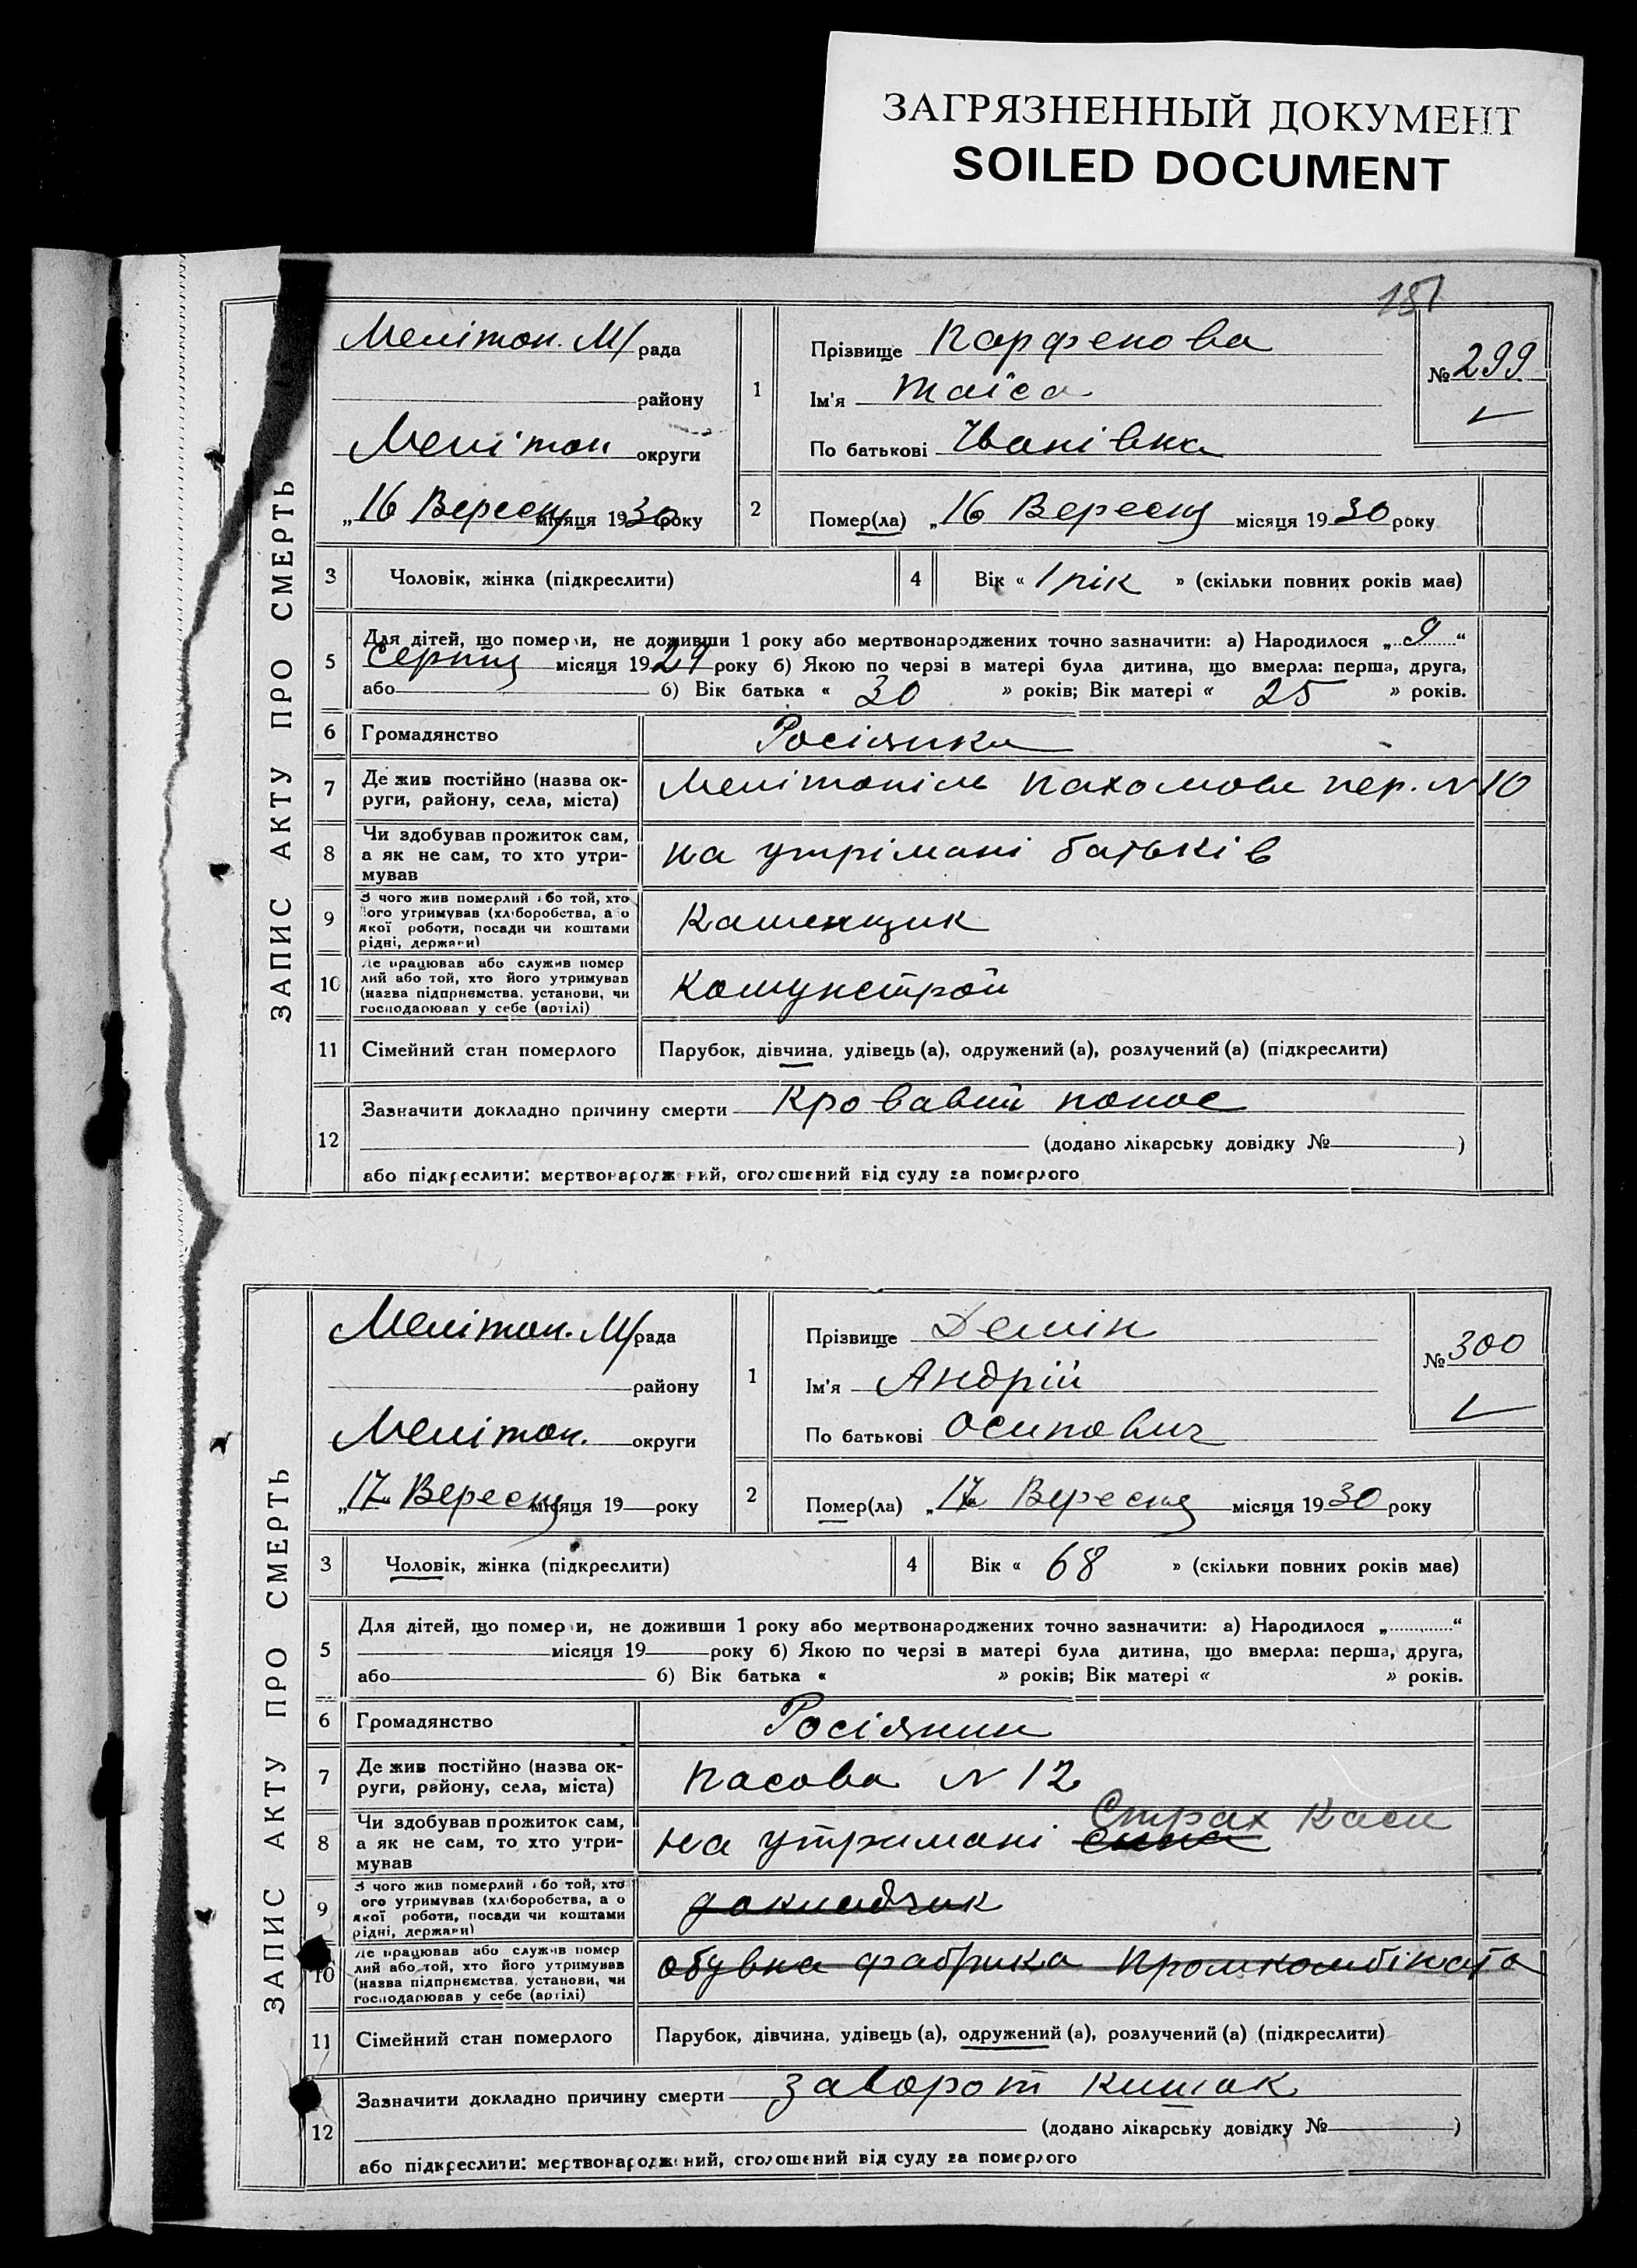 ЗАГРЯЗНЕННЫЙ ДОКУМЕНТ
SOILED DOCUMENT
151
ЗАПИС АКТУ ПРО СМЕРТЬ
Мелітоп. М/рада
району
Мелітоп округи
„16 Вересня місяця 1930 року
1
Прізвище Парфенова
Ім'я Таїса
По батькові Іванівна
№ 299
2
Помер(ла) „16 Вересня місяця 1930 року
3 Чоловік, жінка (підкреслити)
4 Вік « 1 рік » (скільки повних років має)
5 Для дітей, що помер и, не доживши 1 року або мертвонароджених точно зазначити: а) Народилося „ 9 “
Серпня місяця 1929 року б) Якою по черзі в матері була дитина, що вмерла: перша, друга,
або б) Вік батька « 30 » років; Вік матері « 25 » років.
6 Громадянство Росіянка
7 Де жив постійно (назва ок-
руги, району, села, міста)
Мелітопіль Пахомова пер. N 10
8 Чи здобував прожиток сам,
а як не сам, то хто утри-
мував
на утрімані батьків
9 З чого жив померлий або той, хто
його утримував (хліборобства, а о
якої роботи, посади чи коштами
рідні, держави)
Каменщик
10 Де працював або служив помер
лий або той, хто його утримував
(назва підприємства, установи, чи
господарював у себе (артілі)
Комунстрой
11 Сімейний стан померлого Парубок, дівчина, удівець (а), одружений (а), розлучений (а) (підкреслити)
12 Зазначити докладно причину смерти Кровавий понос
(додано лікарську довідку № )
або підкреслити: мертвонароджений, оголошений від суду за померлого
ЗАПИС АКТУ ПРО СМЕРТЬ
Меліточ. М/рада
району
Мелітоп. округи
„17 Вересня місяця 19 року
1
Прізвище Демін
Ім'я Андрій
По батькові Осипович
№ 300
2
Помер(ла) „17 Вересня місяця 1930 року
3 Чоловік, жінка (підкреслити)
4 Вік « 68 » (скільки повних років має)
5 Для дітей, що помер и, не доживши 1 року або мертвонароджених точно зазначити: а) Народилося „ “
місяця 19 року б) Якою по черзі в матері була дитина, що вмерла: перша, друга,
або б) Вік батька « » років; Вік матері « » років.
6 Громадянство Росіянин
7 Де жив постійно (назва ок-
руги, району, села, міста)
Пасова N 12
8 Чи здобував прожиток сам,
а як не сам, то хто утри-
мував
на утримані сина Страх Каси
9 З чого жив померлий або той, хто
ого утримував (хліборобства, а о
якої роботи, посади чи коштами
рідні, держави)
докладчик
10 Де працював або служив помер
лий або той, хто його утримував
(назва підприємства, установи, чи
господарював у себе (артілі)
обувна фабрика Промкомбіната
11 Сімейний стан померлого Парубок, дівчина, удівець (а), одружений (а), розлучений (а) (підкреслити)
12 Зазначити докладно причину смерти заворот кишок
(додано лікарську довідку № )
або підкреслити: мертвонароджений, оголошений від суду за померлого